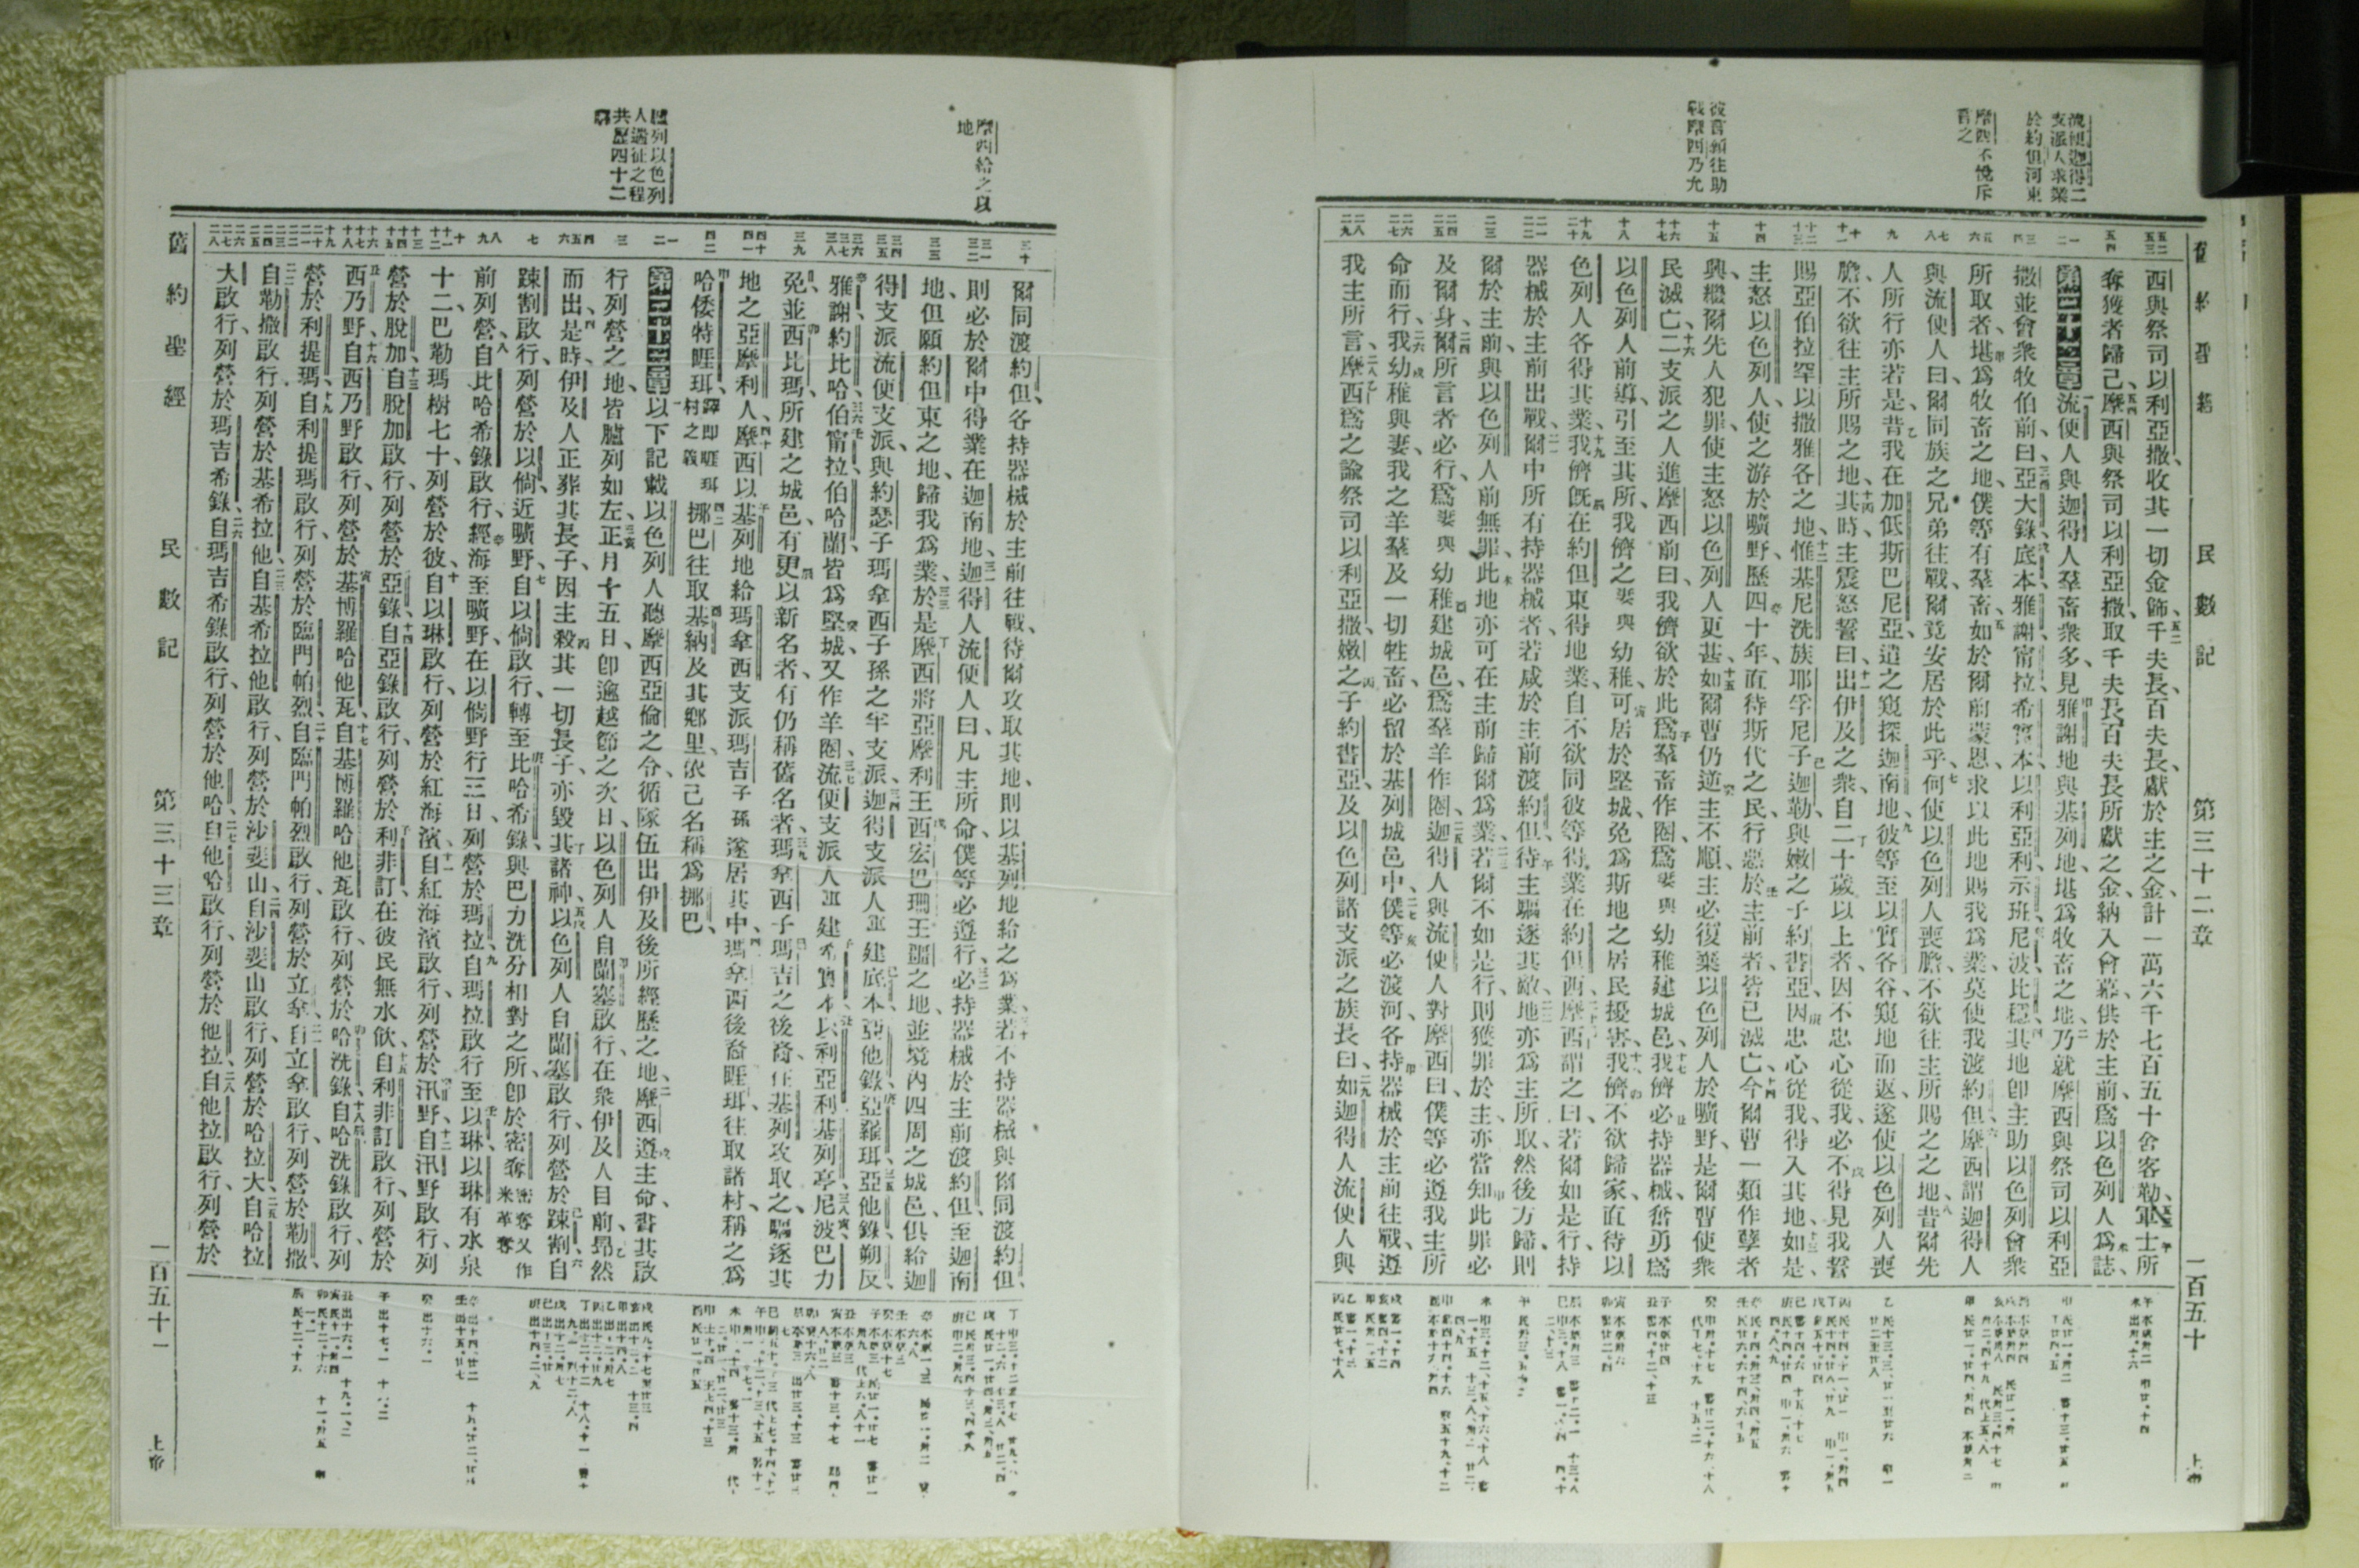 舊約聖經　民數記　第三十二章　一百五十　上帝
流便迦得二
支派人求業
於約但河東
摩西不悅斥
責之
彼言願往助
戰摩西乃允
西與祭司以利亞撒、收其一切金飾、五二千夫長、百夫長、獻於主之金、計一萬六千七百五十舍客勒、五三軍士所
奪獲者歸己、五四摩西與祭司以利亞撒、取千夫長百夫長所獻之金、納入會幕、供於主前、爲以色列人爲誌、
第三十二章一流便人與迦得人羣畜衆多、見雅謝地與基列地、堪爲牧畜之地、二乃就摩西與祭司以利亞
撒、並會衆牧伯前曰、三亞大錄、底本、雅謝、甯拉、希實本、以利亞利、示班、尼波、比穩、四其地卽主助以色列會衆
所取者、堪爲牧畜之地、僕等有羣畜、五如於爾前蒙恩、求以此地賜我爲業、莫使我渡約但、六摩西謂迦得人
與流便人曰、爾同族之兄弟往戰、爾竟安居於此乎、七何使以色列人喪膽、不欲往主所賜之之地、八昔爾先
人所行亦若是、昔我在加低斯巴尼亞、遣之窺探迦南地、九彼等至以實各谷、窺地而返、遂使以色列人喪
膽、不欲往主所賜之地、十其時、主震怒誓曰、十一出伊及之衆、自二十歲以上者、因不忠心從我、必不得見我誓
賜亞伯拉罕以撒雅各之地、十二惟基尼洗族耶孚尼子迦勒、與嫩之子約書亞、因忠心從我、得入其地、十三如是、
主怒以色列人、使之游於曠野、歷四十年、直待斯代之民、行惡於主前者、皆已滅亡、十四今爾曹一類作孽者
興、繼爾先人犯罪、使主怒以色列人更甚、十五如爾曹仍逆主不順、主必復棄以色列人於曠野、是爾曹使衆
民滅亡、十六二支派之人進摩西前曰、我儕欲於此爲羣畜作圈、爲妻與幼稚建城邑、十七我儕必持器械、奮勇爲
以色列人前導、引至其所、我儕之妻與幼稚、可居於堅城、免爲斯地之居民擾害、十八我儕不欲歸家、直待以
色列人各得其業、十九我儕旣在約但東得地業、自不欲同彼等得業在約但西、二十摩西謂之曰、若爾如是行、持
器械於主前出戰、二一爾中所有持器械者、若咸於主前渡約但、待主驅逐其敵、二二地亦爲主所取、然後方歸、則
爾於主前、與以色列人前無罪、此地亦可在主前歸爾爲業、二三若爾不如是行、則獲罪於主、亦當知此罪必
及爾身、二四爾所言者必行、爲妻與幼稚建城邑、爲羣羊作圈、二五迦得人與流便人對摩西曰、僕等必遵我主所
命而行、二六我幼稚與妻、我之羊羣及一切牲畜、必留於基列城邑中、二七僕等必渡河、各持器械於主前往戰、遵
我主所言、二八摩西爲之諭祭司以利亞撒、嫩之子約書亞、及以色列諸支派之族長曰、二九如迦得人流便人與
舊約聖經　民數記　第三十三章　一百五十一　上帝
摩西給之以
地
臚列以色列
人遄征之程
共歷四十二
爾同渡約但、各持器械於主前往戰、待爾攻取其地、則以基列地給之爲業、三十若不持器械與爾同渡約但、
則必於爾中得業在迦南地、三一迦得人流便人曰、凡主所命、僕等必遵行、三二必持器械於主前渡約但、至迦南
地、但願約但東之地、歸我爲業、三三於是摩西將亞摩利王西宏、巴珊王噩之地、並境內四周之城邑、俱給迦
得支派、流便支派、與約瑟子瑪拿西子孫之半支派、三四迦得支派人並建底本、亞他錄、亞羅珥、三五亞他錄朔反、
雅謝、約比哈、三六伯甯拉、伯哈蘭、皆爲堅城、又作羊圈、三七流便支派人並建希實本、以利亞利、基列亭、三八尼波、巴力
免、並西比瑪、所建之城邑、有更以新名者、有仍稱舊名者、三九瑪拿西子瑪吉之後裔、往基列攻取之、驅逐其
地之亞摩利人、四十摩西以基列地給瑪拿西支派瑪吉子孫、遂居其中、四一瑪拿西後裔睚珥、往取諸村、稱之爲
哈倭特睚珥、譯卽睚珥村之義四二挪巴往取基納及其鄉里、依己名稱爲挪巴、
第三十三章一以下記載以色列人聽摩西亞倫之令、循隊伍出伊及後所經歷之地、二摩西遵主命、書其啟
行列營之地、皆臚列如左、三正月十五日、卽逾越節之次日、以色列人自蘭塞啟行、在衆伊及人目前、昂然
而出、四是時、伊及人正葬其長子、因主殺其一切長子、亦毀其諸神、五以色列人自蘭塞啟行、列營於疎割、六自
疎割啟行、列營於以倘、近曠野、七自以倘啟行、轉至比哈希錄、與巴力洗分相對之所、卽於密奪密奪又作米革奪
前列營、八自比哈希錄啟行、經海至曠野、在以倘野行三日、列營於瑪拉、九自瑪拉啟行至以琳、以琳有水泉
十二、巴勒瑪樹七十、列營於彼、十自以琳啟行、列營於紅海濱、十一自紅海濱啟行、列營於汛野、十二自汛野啟行、列
營於脫加、十三自脫加啟行、列營於亞錄、十四自亞錄啟行、列營於利非訂、在彼民無水飲、十五自利非訂啟行、列營於
西乃野、十六自西乃野啟行、列營於基博羅哈他瓦、十七自基博羅哈他瓦啟行、列營於哈洗錄、十八自哈洗錄啟行、列
營於利提瑪、十九自利提瑪啟行、列營於臨門帕烈、二十自臨門帕烈啟行、列營於立拿、二一自立拿啟行、列營於勒撒、
二二自勒撒啟行、列營於基希拉他、二三自基希拉他啟行、列營於沙斐山、二四自沙斐山啟行、列營於哈拉大、二五自哈拉
大啟行、列營於瑪吉希錄、二六自瑪吉希錄啟行、列營於他哈、二七自他哈啟行、列營於他拉、二八自他拉啟行、列營於